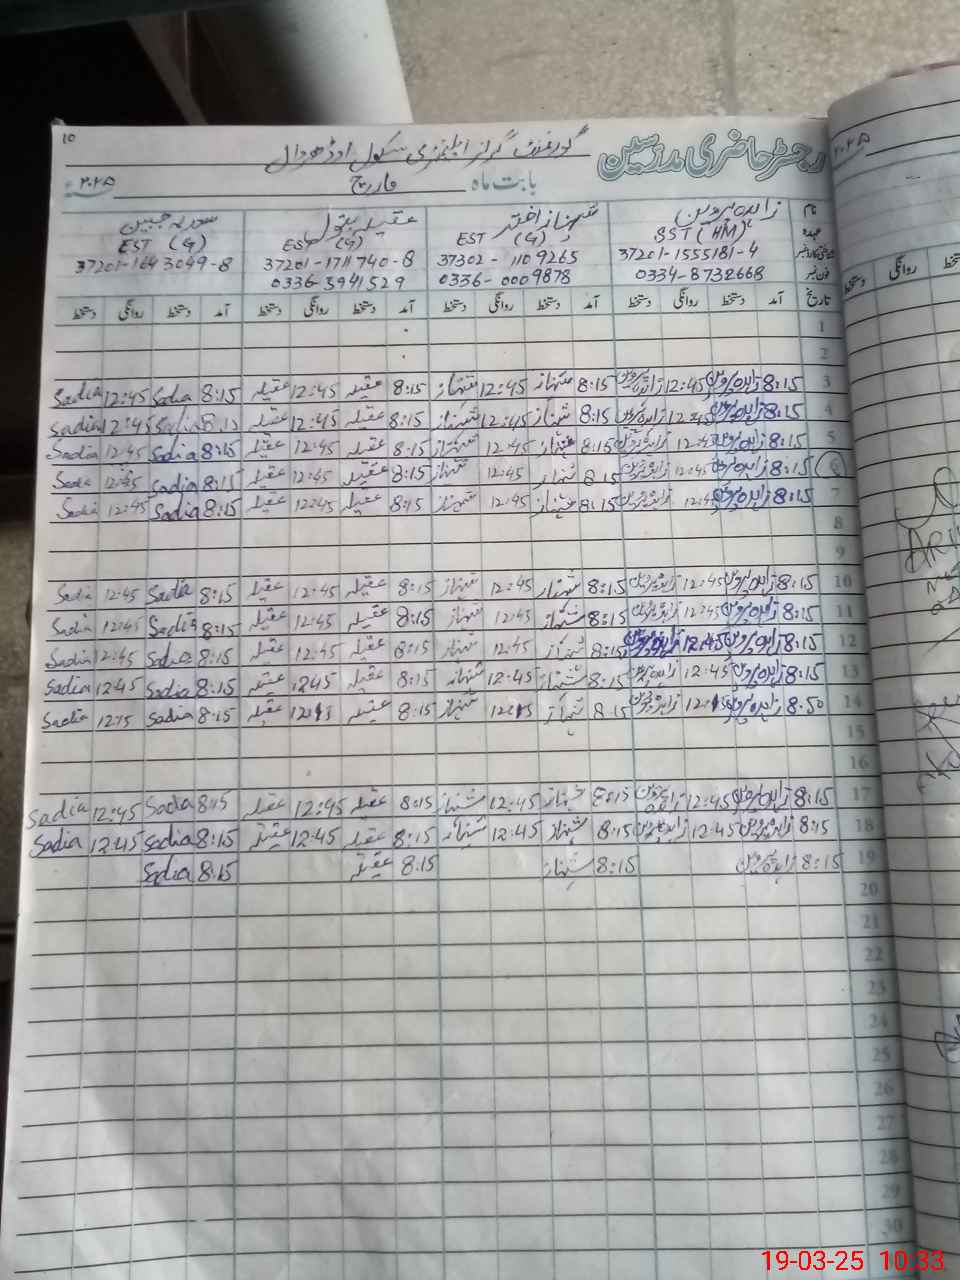 10
گورنمنٹ گرلز ایلیمنٹری سکول اوڈھروال رجسٹر حاضری مدرسین
بابت ماہ مارچ ۲۰۲۵ء
نام زاہدہ پروین شہناز اختر عقیلہ بتول سعدیہ جبیں
عہدہ SST (HM) EST (G) EST (G) EST (G)
شناختی کارڈ نمبر 37201-1555181-4 37302-1109265 37201-1711740-8 37201-1643049-8
فون نمبر 0334-8732668 0336-0009878 0336-5941529
تاریخ آمد دستخط روانگی دستخط آمد دستخط روانگی دستخط آمد دستخط روانگی دستخط آمد دستخط روانگی دستخط
1
2
3 8:15 زاہدہ پروین 12:45 زاہدہ پروین 8:15 شہناز 12:45 شہناز 8:15 عقیلہ 12:45 عقیلہ 8:15 Sadia 12:45 Sadia
4 8:15 زاہدہ پروین 12:45 زاہدہ پروین 8:15 شہناز 12:45 شہناز 8:15 عقیلہ 12:45 عقیلہ 8:15 Sadia 12:45 Sadia
5 8:15 زاہدہ پروین 12:45 زاہدہ پروین 8:15 شہناز 12:45 شہناز 8:15 عقیلہ 12:45 عقیلہ 8:15 Sadia 12:45 Sadia
6 8:15 زاہدہ پروین 12:45 زاہدہ پروین 8:15 شہناز 12:45 شہناز 8:15 عقیلہ 12:45 عقیلہ 8:15 Sadia 12:45 Sadia
7 8:15 زاہدہ پروین 12:45 زاہدہ پروین 8:15 شہناز 12:45 شہناز 8:15 عقیلہ 12:45 عقیلہ 8:15 Sadia 12:45 Sadia
8
9
10 8:15 زاہدہ پروین 12:45 زاہدہ پروین 8:15 شہناز 12:45 شہناز 8:15 عقیلہ 12:45 عقیلہ 8:15 Sadia 12:45 Sadia
11 8:15 زاہدہ پروین 12:45 زاہدہ پروین 8:15 شہناز 12:45 شہناز 8:15 عقیلہ 12:45 عقیلہ 8:15 Sadia 12:45 Sadia
12 8:15 زاہدہ پروین 12:45 زاہدہ پروین 8:15 شہناز 12:45 شہناز 8:15 عقیلہ 12:45 عقیلہ 8:15 Sadia 12:45 Sadia
13 8:15 زاہدہ پروین 12:45 زاہدہ پروین 8:15 شہناز 12:45 شہناز 8:15 عقیلہ 1245 عقیلہ 8:15 Sadia 12:45 Sadia
14 8.50 زاہدہ پروین 12:15 زاہدہ پروین 8:15 شہناز 12:15 شہناز 8:15 عقیلہ 1215 عقیلہ 8:15 Sadia 12:15 Sadia
15
16
17 8:15 زاہدہ پروین 12:45 زاہدہ پروین 8:15 شہناز 12:45 شہناز 8:15 عقیلہ 12:45 عقیلہ 8:15 Sadia 12:45 Sadia
18 8:15 زاہدہ پروین 12:45 زاہدہ پروین 8:15 شہناز 12:45 شہناز 8:15 عقیلہ 12:45 عقیلہ 8:15 Sadia 12:45 Sadia
19 8:15 زاہدہ پروین 8:15 شہناز 8:15 عقیلہ 8:15 Sadia
20
21
22
23
24
25
26
27
28
29
30
۲۰۲۵
دستخط روانگی
19-03-25 10:33